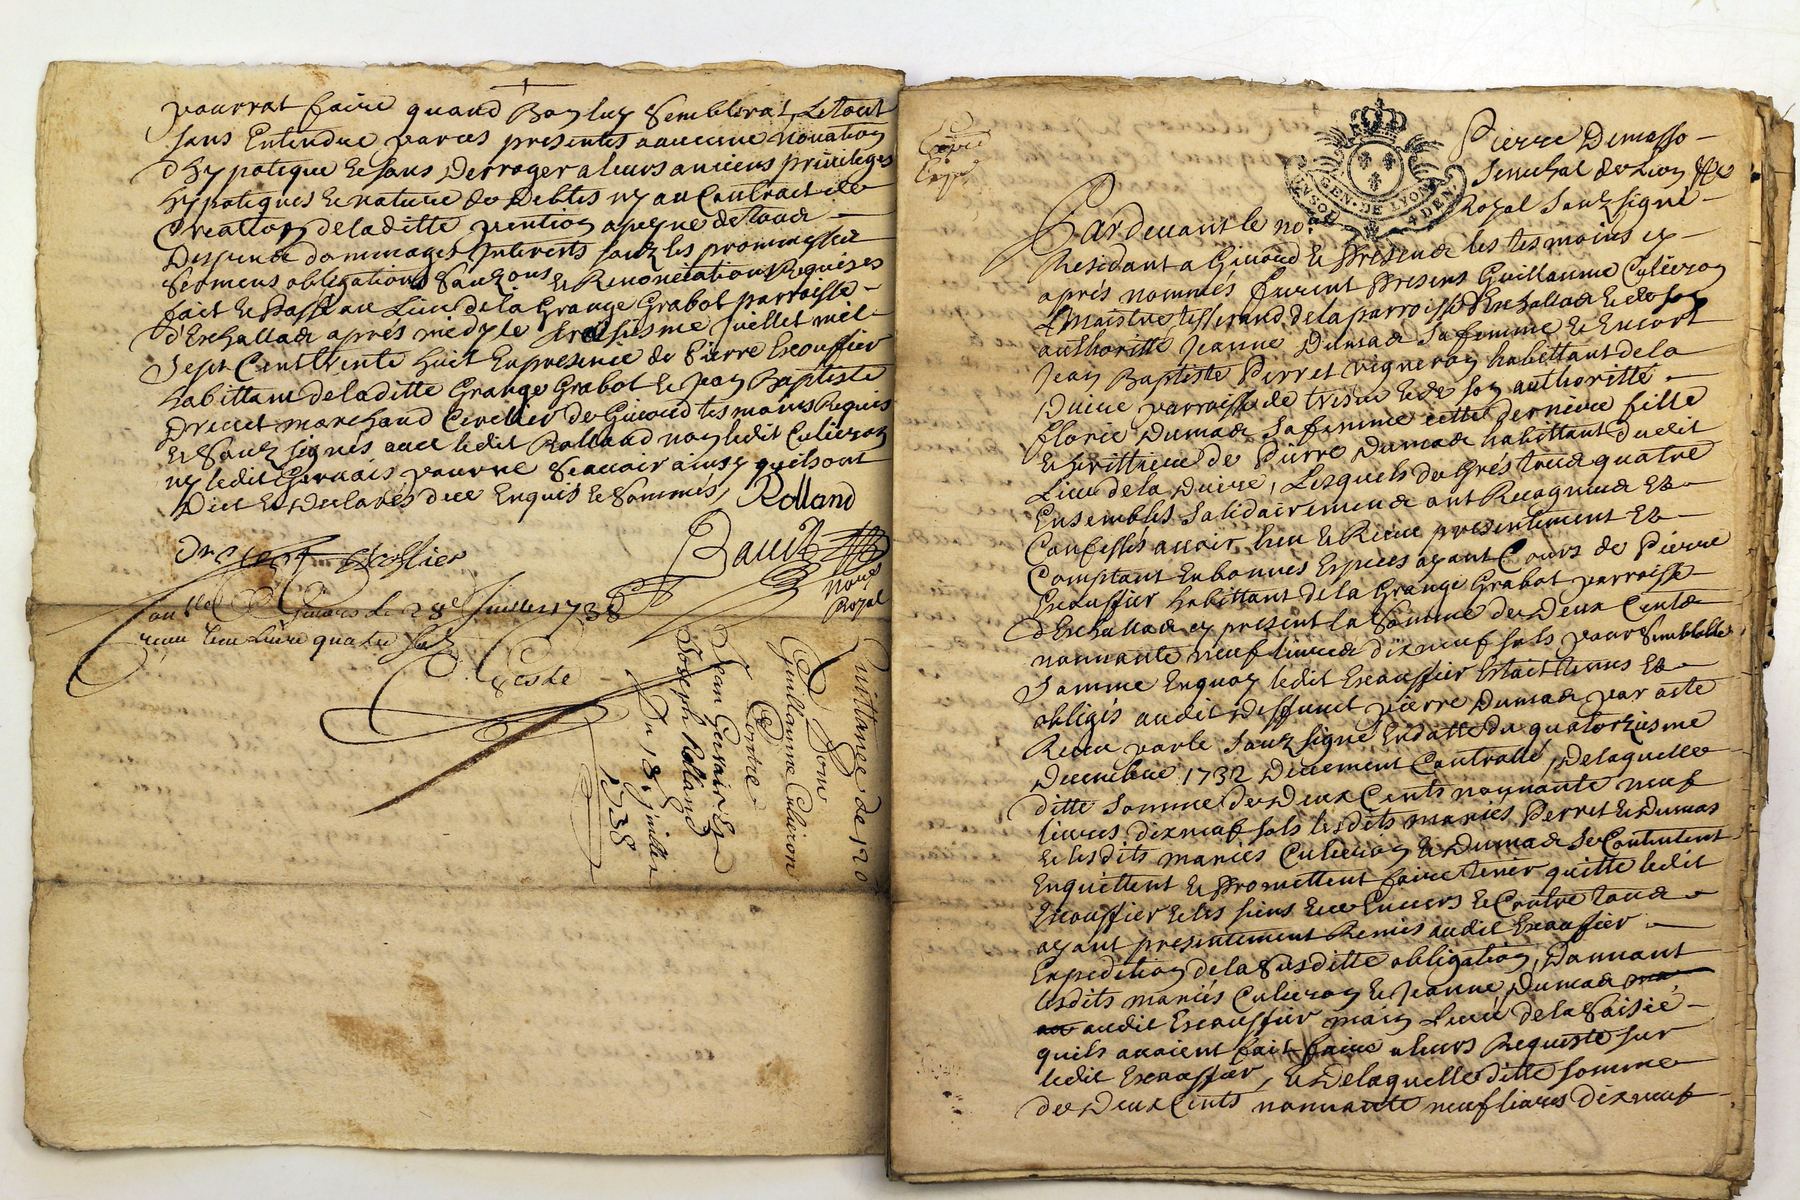 pourrat faire quand Bon luy Semblerat, Le tout
sans Entendre par ces presentes aaucune novation
d'hypoteque Et sans Derroger a leurs anciens privileges
hypoteques Et nature de Debtes ny au Contract de
Creation de laditte pention apeyne de tous
Despens dommages Interests souz les prommesses
Sermens obligations Souzons & Renonciations Requises
fait Et Passé au Lieu de la Grange Grabot parroisse
d'Exchallas aprés midy le Juillet mil
Sept Cent trente huit En presence de Pierre Escoffier
habittant de laditte Grange Grabot Et Jean Baptiste
Drevet marchand de Givord tesmoins Requis
Et Souz signés avec ledit Rolland non ledit Culieron
ny ledit Gervais pour ne Scavoir ainsy qu'ils ont
Dict Et Declarés de ce Enquis Et Sommés, Rolland
Drevet Escoffier
Bauit
nore
Royal
a Givors le 28e Juillet 1738
receu une Livre quatre sols
Coste
Quittance de 120
Pour
Guillaume Culieron
Contre
Jean Gervais Et
Joseph Rolland
Du 18e Juillet
1738
Pierre Demasso
Senechal de Lion &c
GEN. DE LYON
Pardevant le nore Royal Souz signé
Residant a Givord Et Presens les tesmoins cy
aprés nommés furent Presens Guillaume Culieron
Maistre tisserand de la parroisse d'Exchallas Et de Son
authoritté Jeanne Dumas Sa femme & Encort
Jean Baptiste Perret vigneron habittant de la
parroisse de Et de son authoritté
florie Dumas Sa femme cette derniere fille
& herittiere de Pierre Dumas habittant dudit
Lieu de la, Lesquels de Grés tous quatre
Ensembles Solidairement ont Recognus Et
Confessés avoir heu & Receu presentement Et
Comptant En bonnes Espices ayant Cours de Pierre
Escouffier habittant de la Grange Grabot parroisse
d'Exchallas cy present la Somme de Deux Cents
nonnante neuf livres dixneuf sols pour Semblable
Somme Enquoy ledit Escouffier Estait tenus Et
obligés audit Deffunct pierre Dumas par acte
Receu par le Souz signé En datte du quatorziesme
Decembre 1732 Deuement Controllé, De laquelle
ditte Somme de Deux Cents nonnante neuf
livres dixneuf sols lesdits mariés Perret Et Dumas
Et lesdits mariés Culieron & Dumas Se Contentent
Enquittent & Promettent faire tenir quitte ledit
Escouffier & les siens Envers & Contre tous
ayant presentement Remis audit Escouffier
Expedition de la Susditte obligation, Donnant
lesdits mariés Culieron & Jeanne Dumas
audit Escouffier main Levée de la Saisie
quils avaient fait faire a leurs Requeste sur
ledit Escouffier, & De laquelle ditte Somme
de Deux Cents nonnante neuf livres dixneuf